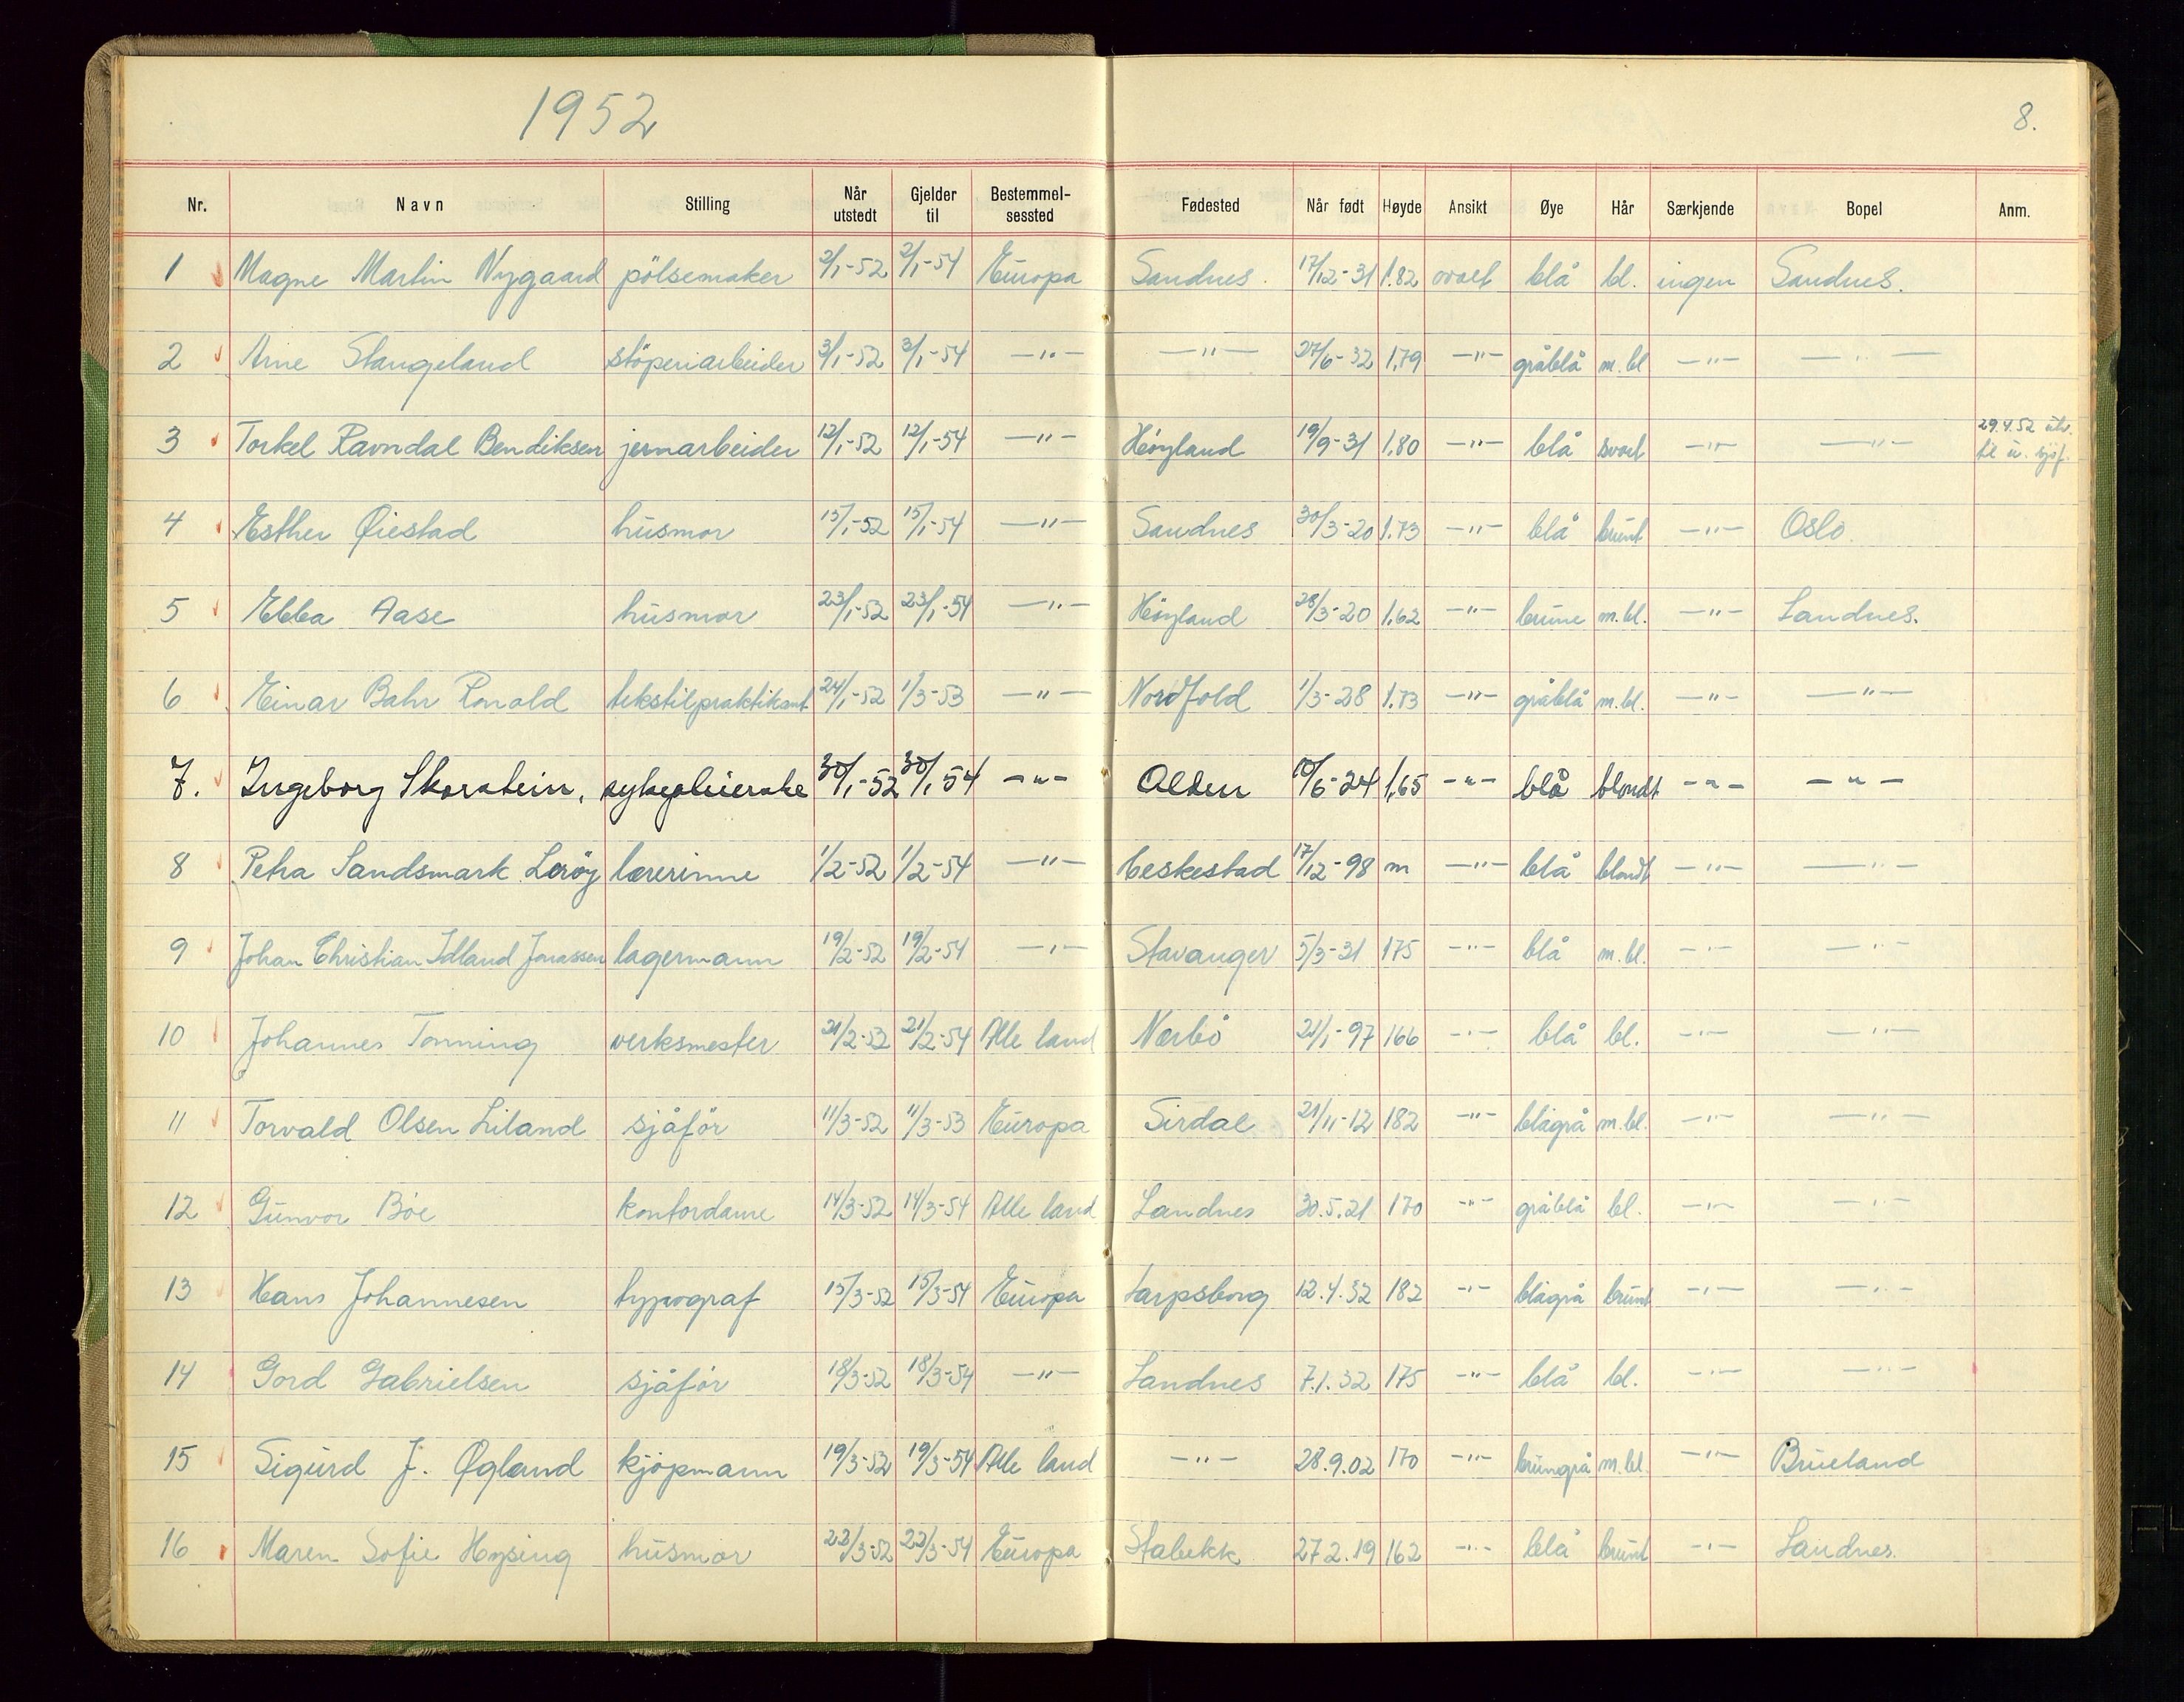 1952
8.
Nr. Navn Stilling Når utstedt Gjelder til Bestemmel-sessted Fødested Når født Høyde Ansikt Øye Hår Særkjende Bopel Anm.
1 Magne Martin Nygaard pölsemaker 2/1-52 2/1-54 Europa Sandnes. 17/12-31 1.82 ovalt blå bl. ingen Sandnes.
2 Arne Stangeland stöperiarbeider 3/1-52 3/1-54 —"— —"— 27/6-32 1,79 —"— gråblå m.bl —"— —"—
3 Torkel Ravndal Bendiksen jernarbeider 12/1-52 12/1-54 —"— Höyland 19/9-31 1,80 —"— blå svart —"— —"— 29.4.52 utv. til u. sjöf.
4 Esther Øiestad husmor 15/1-52 15/1-54 —"— Sandnes 30/3-20 1.73 —"— blå brunt —"— Oslo.
5 Ebba Aase husmor 23/1-52 23/1-54 —"— Höyland 28/3-20 1,62 —"— brune m.bl. —"— Sandnes.
6 Einar Bahr Ronald tekstilpraktikant 24/1-52 1/3-53 —"— Nordfold 1/3-28 1.73 —"— gråblå m.bl. —"— —"—
7. Ingeborg Skorstein, sykepleierske 30/1-52 30/1-54 —"— Olden 10/6-24 1,65 —"— blå blondt —"— —"—
8 Petra Sandsmark Leröy lærerinne 1/2-52 1/2-54 —"— Heskestad 17/12-98 m —"— blå blondt —"— —"—
9 Johan Christian Idland Jonassen lagermann 19/2-52 19/2-54 —"— Stavanger 5/3-31 175 —"— blå m.bl. —"— —"—
10 Johannes Tonning verksmester 21/2-52 21/2-54 Alle land Nærbö 21/1-97 166 —"— blå bl. —"— —"—
11 Torvald Olsen Liland sjåför 11/3-52 11/3-53 Europa Sirdal 21/11-12 182 —"— blågrå m.bl. —"— —"—
12 Gunvor Böe kontordame 14/3-52 14/3-54 Alle land Sandnes 30.5.21 170 —"— gråblå bl. —"— —"—
13 Hans Johannesen typograf 15/3-52 15/3-54 Europa Sarpsborg 12.4.32 182 —"— blågrå brunt —"— —"—
14 Gord Gabrielsen sjåför 18/3-52 18/3-54 —"— Sandnes 7.1.32 175 —"— blå bl. —"— —"—
15 Sigurd J. Øgland kjöpmann 19/3-52 19/3-54 Alle land —"— 28.9.02 170 —"— brungrå m.bl. —"— Brueland
16 Maren Sofie Hysing husmor 22/3-52 22/3-54 Europa Stabekk 27.2.19 162 —"— blå brunt —"— Sandnes.